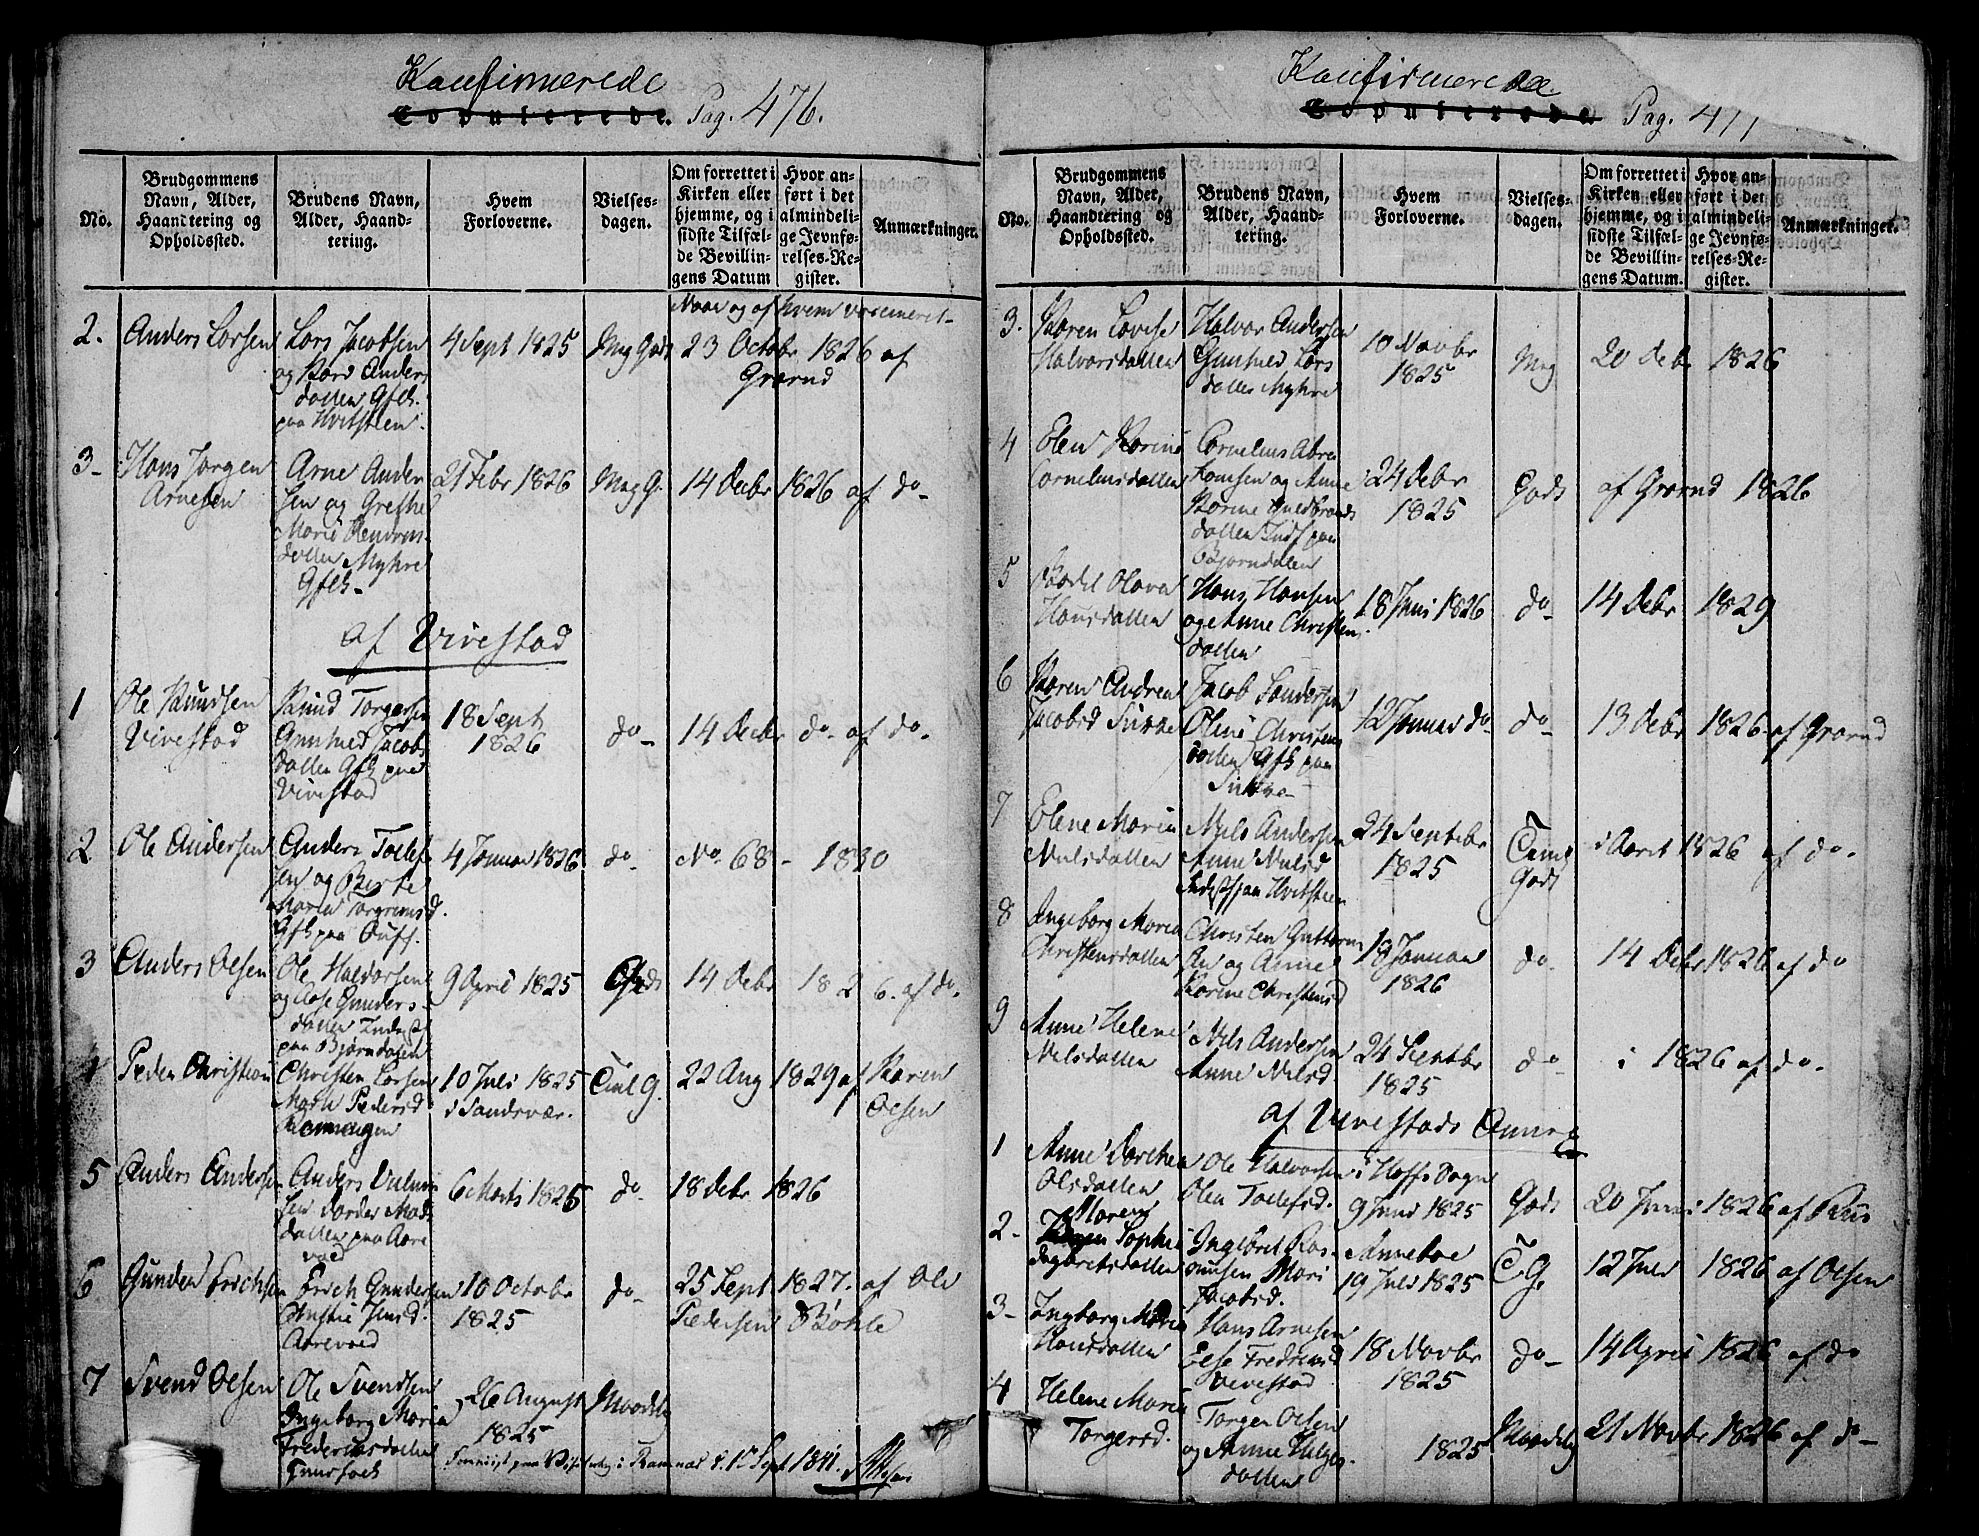 Konfirmerede
Copulerede. Pag. 476.
No.
Brudgommens Navn, Alder, Haandtering og Opholdssted.
Brudens Navn, Alder, Haandtering.
Hvem Forloverne.
Vielsesdagen.
Om forrettet i Kirken eller hjemme, og i sidste Tilfælde Bevillingens Datum
Hvor anført i det almindelige Jevnførelses-Register.
Anmærkninger.
Naar og af hvem vaccineret
2. Anders Larsen
Lars Jacobsen
og Kari Anders
datter Gfls.
paa Hvitsteen.
4 Sept 1825
Mg Gods
23 Octobr 1826 af
Grørud
3- Hans Jørgen
Arnesen
Arne Ander
sen og Grethe
Marie
datter Myhre
Gfls-
21 Febr 1826
Meg G.
14 Decbr 1826 af do-
af Vivestad
1 Ole Knudsen
Vivestad
Knud Torgersen
Gunhild Jacobs
datter Gfls paa
Vivestad
18 Sept
1826
do-
14 Decbr do- af do-
2 Ole Andersen
Anders Tollef
sen og Berte
Maria Torgrimsd.
Gfls paa
4 Januar 1826.
do-
No. 68- 1830
3 Anders Olsen
Ole Haldorsen
og Aase Gunders
datter Inderst
paa Bjørndalen
9 April 1825
Gods
14 Debr 1826. af do.
4 Peder Christian
Christen Larsen
Maria Pedersd
10 Juli 1825
i Sandsvær.
Tml G.
22 Aug 1829 af Karen
Olsen
5 Anders Andersen
Anders
sen Dorthe Mads
datter paa Aare
vold
6 Marts 1825
do-
18 Debr 1826
6 Gunder Erichsen
Erich Gundersen
Christie Jensd.
Aarevold
10 Octobr
1825
do-
25 Sept 1827. af Ole
Pedersen Bøhle
7 Svend Olsen
Ole Svendsen
Ingeborg Maria
Fredericksdatter
26 August
1825
Maadelig
i Ramnæs d. 1 Sept 1841.
Konfirmerede
Copulerede Pag. 477
No.
Brudgommens Navn, Alder, Haandtering og Opholdssted.
Brudens Navn, Alder, Haandtering.
Hvem Forloverne.
Vielsesdagen.
Om forrettet i Kirken eller hjemme, og i sidste Tilfælde Bevillingens Datum.
Hvor anført i det almindelige Jevnførelses-Register.
Anmærkninger.
3. Karen Lovise
Halvorsdatter
Halvor Andersen
Gunhild Lars
datter Myhre
10 Novbr
1825
Mg
20 Debr 1826
4 Elen Karine
Cornelius datter
Cornelius Abra
hamsen og Anne
Karine Guldbrands
datter Inds paa
Bjørndalen
24 Debr
1825
Gods
af Grørud 1826
5 Bodil Olava
Hansdatter
Hans Hansen
og Anne Christens
datter
18 Juni 1826
do-
14 Debr 1829
6 Karen Andrea
Jacobsd
Jacob
Oline Christens
datter Gfls paa
12 Januar do
do-
13 Debr 1826- af Grørud
7 Elene Maria
Nielsdatter
Niels Andersen
Anne Nielsd
Inderst paa Hvitsteen
24 Septbr
1825
Teml
Gods
i Aaret 1826 af do.
8 Ingeborg Maria
Christensdatter
Christen Guttorm
sen og Anne
Karine Christensd
18 Januar
1826
do-
14 Debr 1826 af do
9 Anne Helene
Nielsdatter
Niels Andersen
Anne Nielsd
24 Septbr
1825
do
i 1826 af do.
af Vivestads Annex
1 Anne Dorthea
Olsdatter
Ole Halvorsen
Olea Tollefsd.
i Hoffs Sogn
9 Juni 1825
Gods
20 Juni 1826 af
2- Maren
Sophie
Ingebretsdatter
Ingebret Ras-
mussen Mari
Jacobsd.
Anneboe
19 Juli 1825
T G.
12 Juli 1826 af Olsen
3- Ingborg Maria
Hansdatter
Hans Arnesen
Else
Vivestad
18 Novbr
1825
do-
14 April 1826 af do
4 Helene Maria
Torgersd.
Torger Olsen
og Anne Helges
datter
1825
Maadelig
21 Novbr 1826 af do-